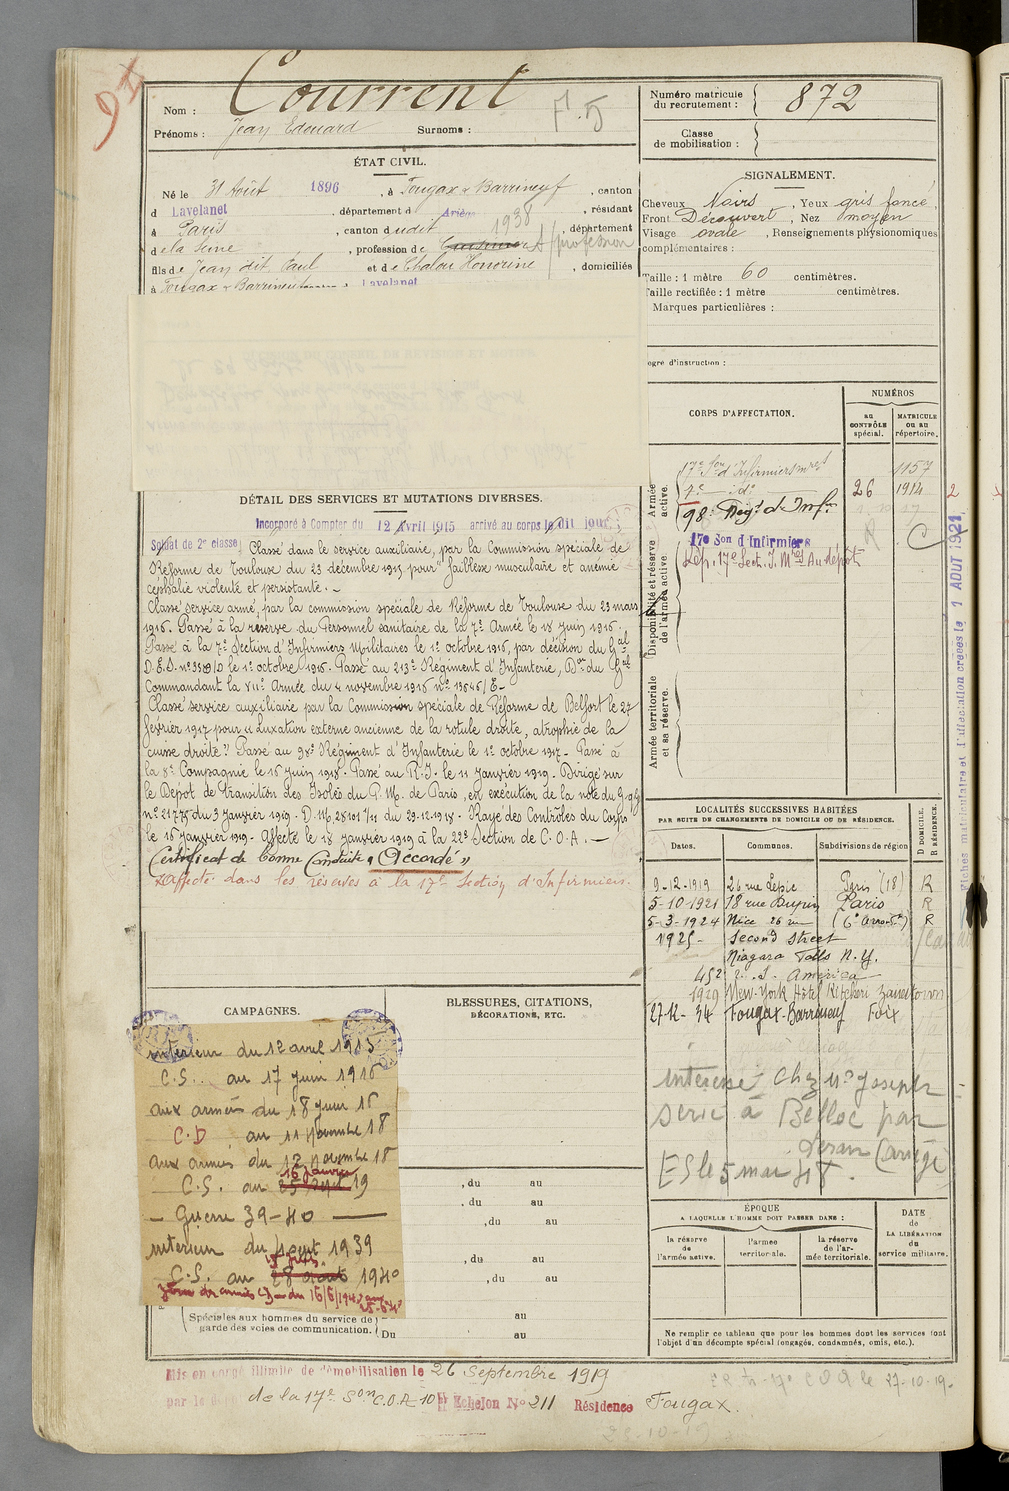 Courrent
Nom :
Prénoms : Jean Edouard Surnoms :
F.5
Numéro matricule
du recrutement : 872
Classe
de mobilisation :
ÉTAT CIVIL.
Né le 31 Août 1896, à Fougax & Barrineuf, canton
d Lavelanet, département d Ariège, résidant
à Paris, canton dudit 1938, département
d e la Seine, profession de profession
fils de Jean dit Paul et de Chalou Honorine, domiciliés
à Fougax & Barrineuf Lavelanet
SIGNALEMENT.
Cheveux Noirs, Yeux gris foncé,
Front Découvert, Nez moyen
Visage ovale, Renseignements physionomiques
complémentaires :
Taille : 1 mètre 60 centimètres.
Taille rectifiée : 1 mètre centimètres.
Marques particulières :
egré d'instruction :
CORPS D'AFFECTATION.
NUMÉROS
au
CONTRÔLE
spécial.
MATRICULE
ou au
répertoire.
Armée
active.
17e Son d'Infirmiers mres 1157
7e do 26 1914
98e Régt d'Infie
Disponibilité et réserve
de l'armée active
17e Son d'Infirmiers
Dép. 17e Sect. I. Mres Au dépôt
Armée territoriale
et sa réserve.
DÉTAIL DES SERVICES ET MUTATIONS DIVERSES.
Incorporé à Compter du 12 Avril 1915 arrivé au corps le dit jour
Soldat de 2e classe Classé dans le service auxiliaire, par la Commission spéciale de
Réforme de Toulouse du 23 décembre 1915 pour "faiblesse musculaire et anémie
céphalie violente et persistante. -
Classé service armé, par la commission spéciale de Réforme de Toulouse du 23 mars
1916. Passé à la réserve du Personnel sanitaire de la 7e Armée le 18 Juin 1916.
Passé à la 7e Section d'Infirmiers Militaires le 1er octobre 1916, par décision du Gal
D.E.S. no 3319/D le 1er octobre 1916. Passé au 213e Régiment d'Infanterie, Don du Gal
Commandant la VIIe Armée du 4 novembre 1916 no 13646/E-
Classé service auxiliaire par la Commission spéciale de Réforme de Belfort le 27
février 1917 pour "Luxation externe ancienne de la rotule droite, atrophie de la
cuisse droite." Passé au 98e Régiment d'Infanterie le 1er octobre 1917 - Passé à
la 8e Compagnie le 15 Juin 1918. Passé au R.I. le 11 Janvier 1919. Dirigé sur
le Dépôt de transition des Isolés du G.M. de Paris, en exécution de la note du G.Q.G
no 21775 du 3 Janvier 1919 - D.M. 28101 1/11 du 29-12-1918 - Rayé des Contrôles du Corps
le 16 Janvier 1919 - Affecté le 18 Janvier 1919 à la 22e Section de C.O.A. -
Certificat de bonne Conduite "Accordé"
Affecté dans les réserves à la 17e Section d'Infirmiers.
Fiches matriculaire et d'affectation créées le 1 AOUT 1921
LOCALITÉS SUCCESSIVES HABITÉES
PAR SUITE DE CHANGEMENTS DE DOMICILE OU DE RÉSIDENCE.
Dates. Communes. Subdivisions de région D DOMICILE. R RÉSIDENCE.
9-12-1919 26 rue Lepic Paris (18) R
5-10-1921 18 rue Dupin Paris R
5-3-1924 Nice 26 rue R
1925 - Second Street
Niagara Falls N.Y.
America
1929 New-York Hôtel
34 Fougax-Barrineuf Foix
intéressé chez Mr Joseph
Seric à Belloc par
Léran (Ariège)
ES le 5 mai 48.
CAMPAGNES.
BLESSURES, CITATIONS,
DÉCORATIONS, ETC.
intérieur du 12 avril 1915
C.S. au 17 juin 1916
aux armées du 18 juin 16
C.D au 11 Novembre 18
aux armées du 12 Novembre 18
16 janvier
C.S. au 19
- Guerre 39-40 -
intérieur du 1940 1939
C.S. au 28 août 1940
Zone des armées CD - du 16/6/1940 au
25-6-40
, du au
, du au
, du au
, du au
, du au
Spéciales aux hommes du service de
garde des voies de communication.
au
Du au
ÉPOQUE
A LAQUELLE L'HOMME DOIT PASSER DANS :
la réserve
de
l'armée active.
l'armée
territoriale.
la réserve
de l'ar-
mée territoriale.
DATE
de
LA LIBÉRATION
du
service militaire.
Ne remplir ce tableau que pour les hommes dont les services font
l'objet d'un décompte spécial (engagés, condamnés, omis, etc.).
Mis en congé illimité de démobilisation le 26 Septembre 1919
par le de la 17e Son C.O.A - 10e Echelon No 211 Résidence Fougax.